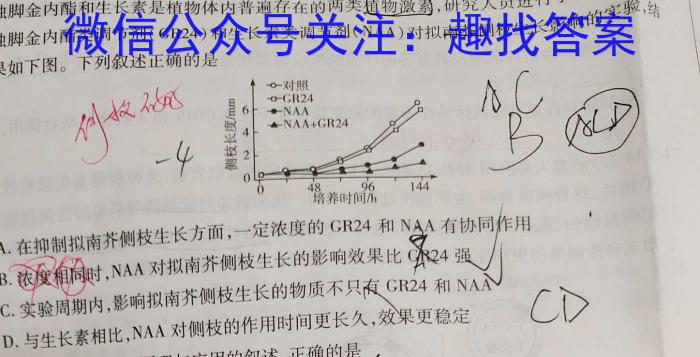 独脚金内酯和生长素是植物体内普遍存在的两类植物激素,研究人员进行
微信公众号关注：趣找答案
独脚金内酯类调节剂(GR24)和生长素类调节剂(NAA)对拟南芥侧枝生长影响的实验,结
果如下图。下列叙述正确的是
对照
GR24
NAA
NAA+GR24
侧枝长度/mm
6
4
2
0
0 48 96 144
培养时间/h
-4
A C
B
ACD
A.在抑制拟南芥侧枝生长方面,一定浓度的 GR24 和 NAA 有协同作用
B.浓度相同时,NAA 对拟南芥侧枝生长的影响效果比 GR24 强
C.实验周期内,影响拟南芥侧枝生长的物质不只有 GR24 和 NAA
CD
D.与生长素相比,NAA 对侧枝的作用时间更长久,效果更稳定
的叙述,正确的是